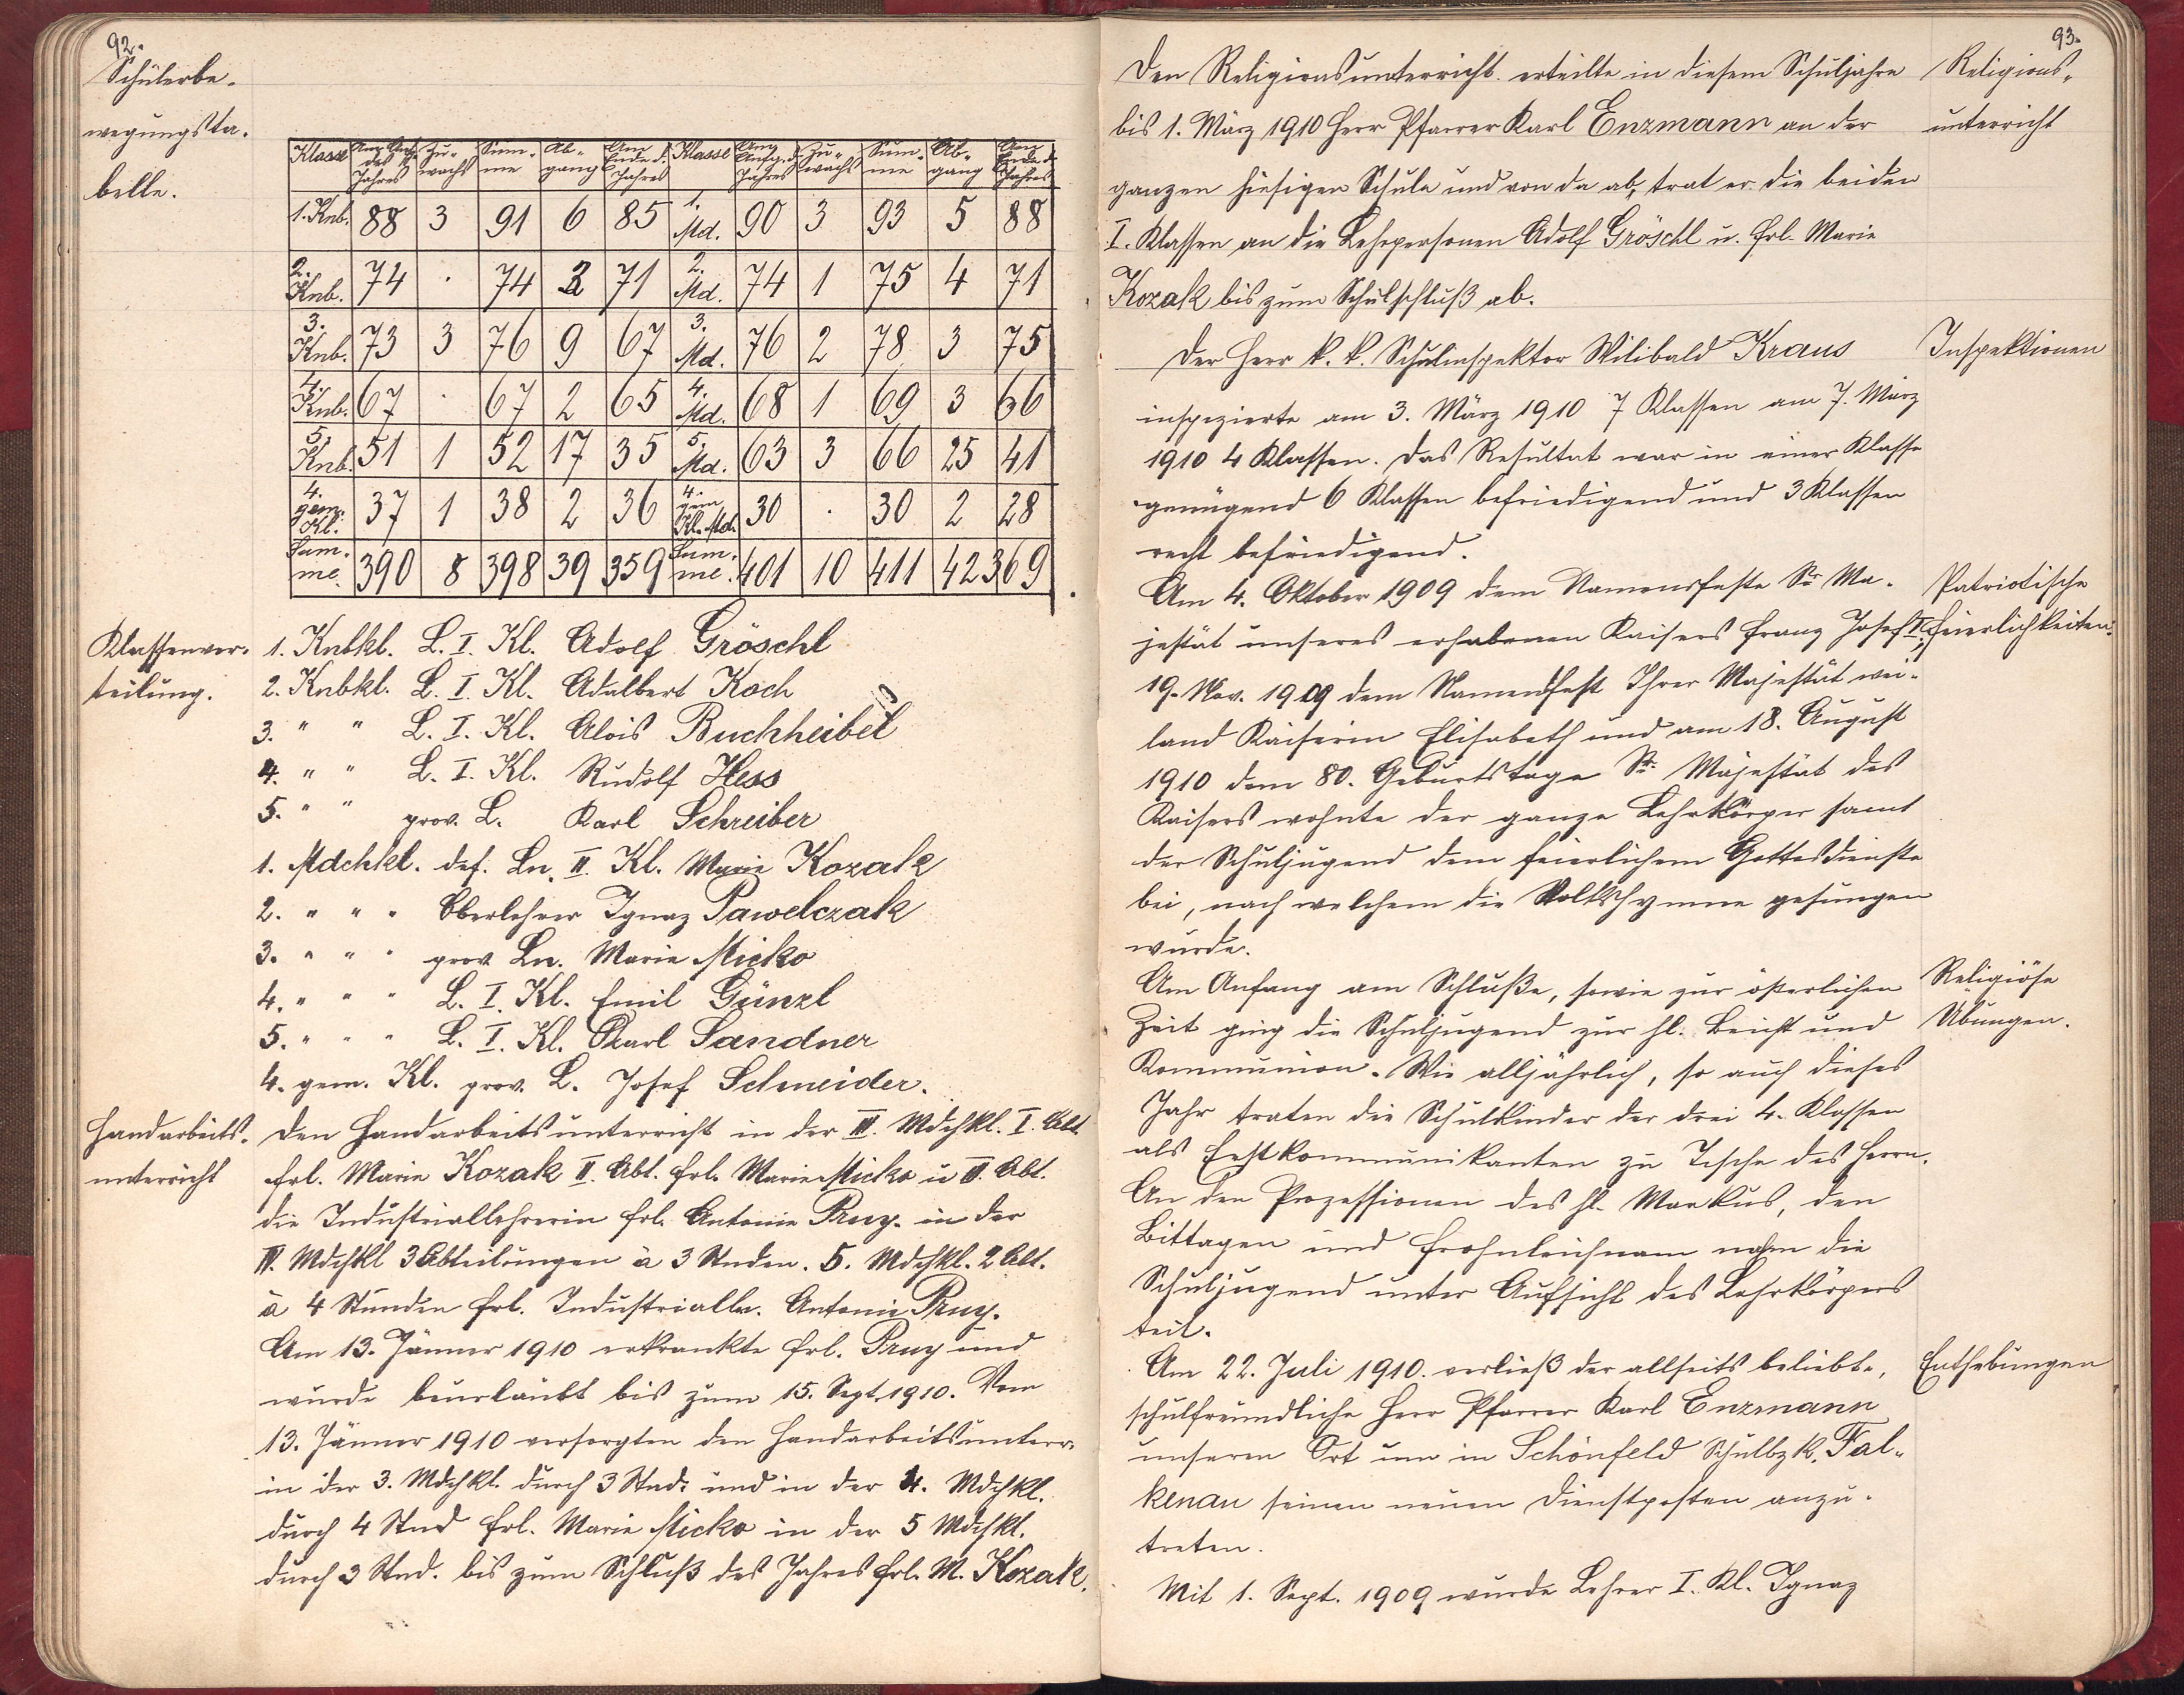 92.
Schülerbe-
wegungsta-
belle.
Klasse Anz. Anf. des Jahres Zu-wachs Sum-me Ab-gang Am Ende d. Jahres Klasse Am Anfg. d. Jahres Zu-wachs Sum-me Ab-gang Am Ende d. Jahres
1. Knb. 88 3 91 6 85 1. Md. 90 3 93 5 88
2. Knb. 74 · 74 3 71 2. Md. 74 1 75 4 71
3. Knb. 73 3 76 9 67 3. Md. 76 2 78 3 75
4. Knb. 67 · 67 2 65 4. Md. 68 1 69 3 66
5. Knb. 51 1 52 17 35 5. Md. 63 3 66 25 41
4. gem. Kl. 37 1 38 2 36 4. gem Kl. Md. 30 · 30 2 28
Sum-me. 390 8 398 39 359 Sum-me. 401 10 411 42 369
Klassenver-
teilung.
1. Knbkl. L. I. Kl. Adolf Gröschl
2. Knbkl. L. I. Kl. Adalbert Koch
3. " " L. I. Kl. Alois Buchheibel
4. " " L. I. Kl. Rudolf Hess
5. " " prov. L. Karl Schreiber
1. Mdchkl. def. Ln. II. Kl. Marie Kozak
2. " " " Oberlehrer Ignaz Pawelczak
3. " " " prov. Ln. Marie Micko
4. " " " L. I. Kl. Emil Günzl
5. " " " L. I. Kl. Karl Sandner
4. gem. Kl. prov. L. Josef Schneider.
Handarbeits-
unterricht
Den Handarbeitsunterricht in der III. Mdchkl. I. Abt.
Frl. Marie Kozak II. Abt. Frl. Marie Micko u III. Abt.
die Industriallehrerin Frl. Antonie Pruy. in der
IV. Mdchkl 3 Abteilungen à 3 Stnden. 5. Mdchkl. 2 Abt.
à 4 Stunden Frl. Industrialln. Antonie Pruy.
Am 13. Jänner 1910 erkrankte Frl. Pruy und
wurde beurlaubt bis zum 15. Sept. 1910. Vom
13. Jänner 1910 versorgten den Handarbeitsunterr.
in der 3. Mdchkl. durch 3 Stnd. und in der 4. Mdchkl.
durch 4 Stnd Frl. Marie Micko in der 5 Mdchkl.
durch 3 Stnd. bis zum Schluß des Jahres Frl. M. Kozak.
93.
Religions-
unterricht
Den Religionsunterricht erteilte in diesem Schuljahre
bis 1. März 1910 Herr Pfarrer Karl Enzmann an der
ganzen hiesigen Schule und von da ab, trat er die beiden
I. Klassen an die Lehrpersonen Adolf Gröschl u. Frl. Marie
Kozak bis zum Schulschluß ab.
Inspektionen
Der Herr k. k. Schulinspektor Wilibald Kraus
inspizierte am 3. März 1910 7 Klassen am 7. März
1910 4 Klassen. Das Resultat war in einer Klasse
genügend 6 Klassen befriedigend und 3 Klassen
recht befriedigend.
Patriotische
Feierlichkeiten.
Am 4. Oktober 1909 dem Namensfeste Sr Ma-
jestät unseres erhabenen Kaisers Franz Josef I.,
19. Nov. 1909 dem Namensfest Ihrer Majestät wei-
land Kaiserin Elisabeth und am 18. August
1910 dem 80. Geburtstage Sr. Majestät des
Kaisers wohnte der ganze Lehrkörper samt
der Schuljugend dem feierlichem Gottesdienste
bei, nach welchem die Volkshymne gesungen
wurde.
Religiöse
Übungen.
Am Anfang am Schluße, sowie zur österlichen
Zeit ging die Schuljugend zur hl. Beicht und
Kommunion. Wie alljährlich, so auch dieses
Jahr traten die Schulkinder der drei 4. Klassen
als Erstkommunikanten zu Tische des Herrn.
An den Prozessionen des hl. Markus, den
Bittagen und Frohnleichnam nahm die
Schuljugend unter Aufsicht des Lehrkörpers
teil.
Enthebungen
Am 22. Juli 1910. verließ der allseits beliebte,
schulfreundliche Herr Pfarrer Karl Enzmann
unseren Ort um in Schönfeld Schulbzk. Fal-
kenau seinen neuen Dienstposten anzu-
treten.
Mit 1. Sept. 1909 wurde Lehrer I. Kl. Ignaz